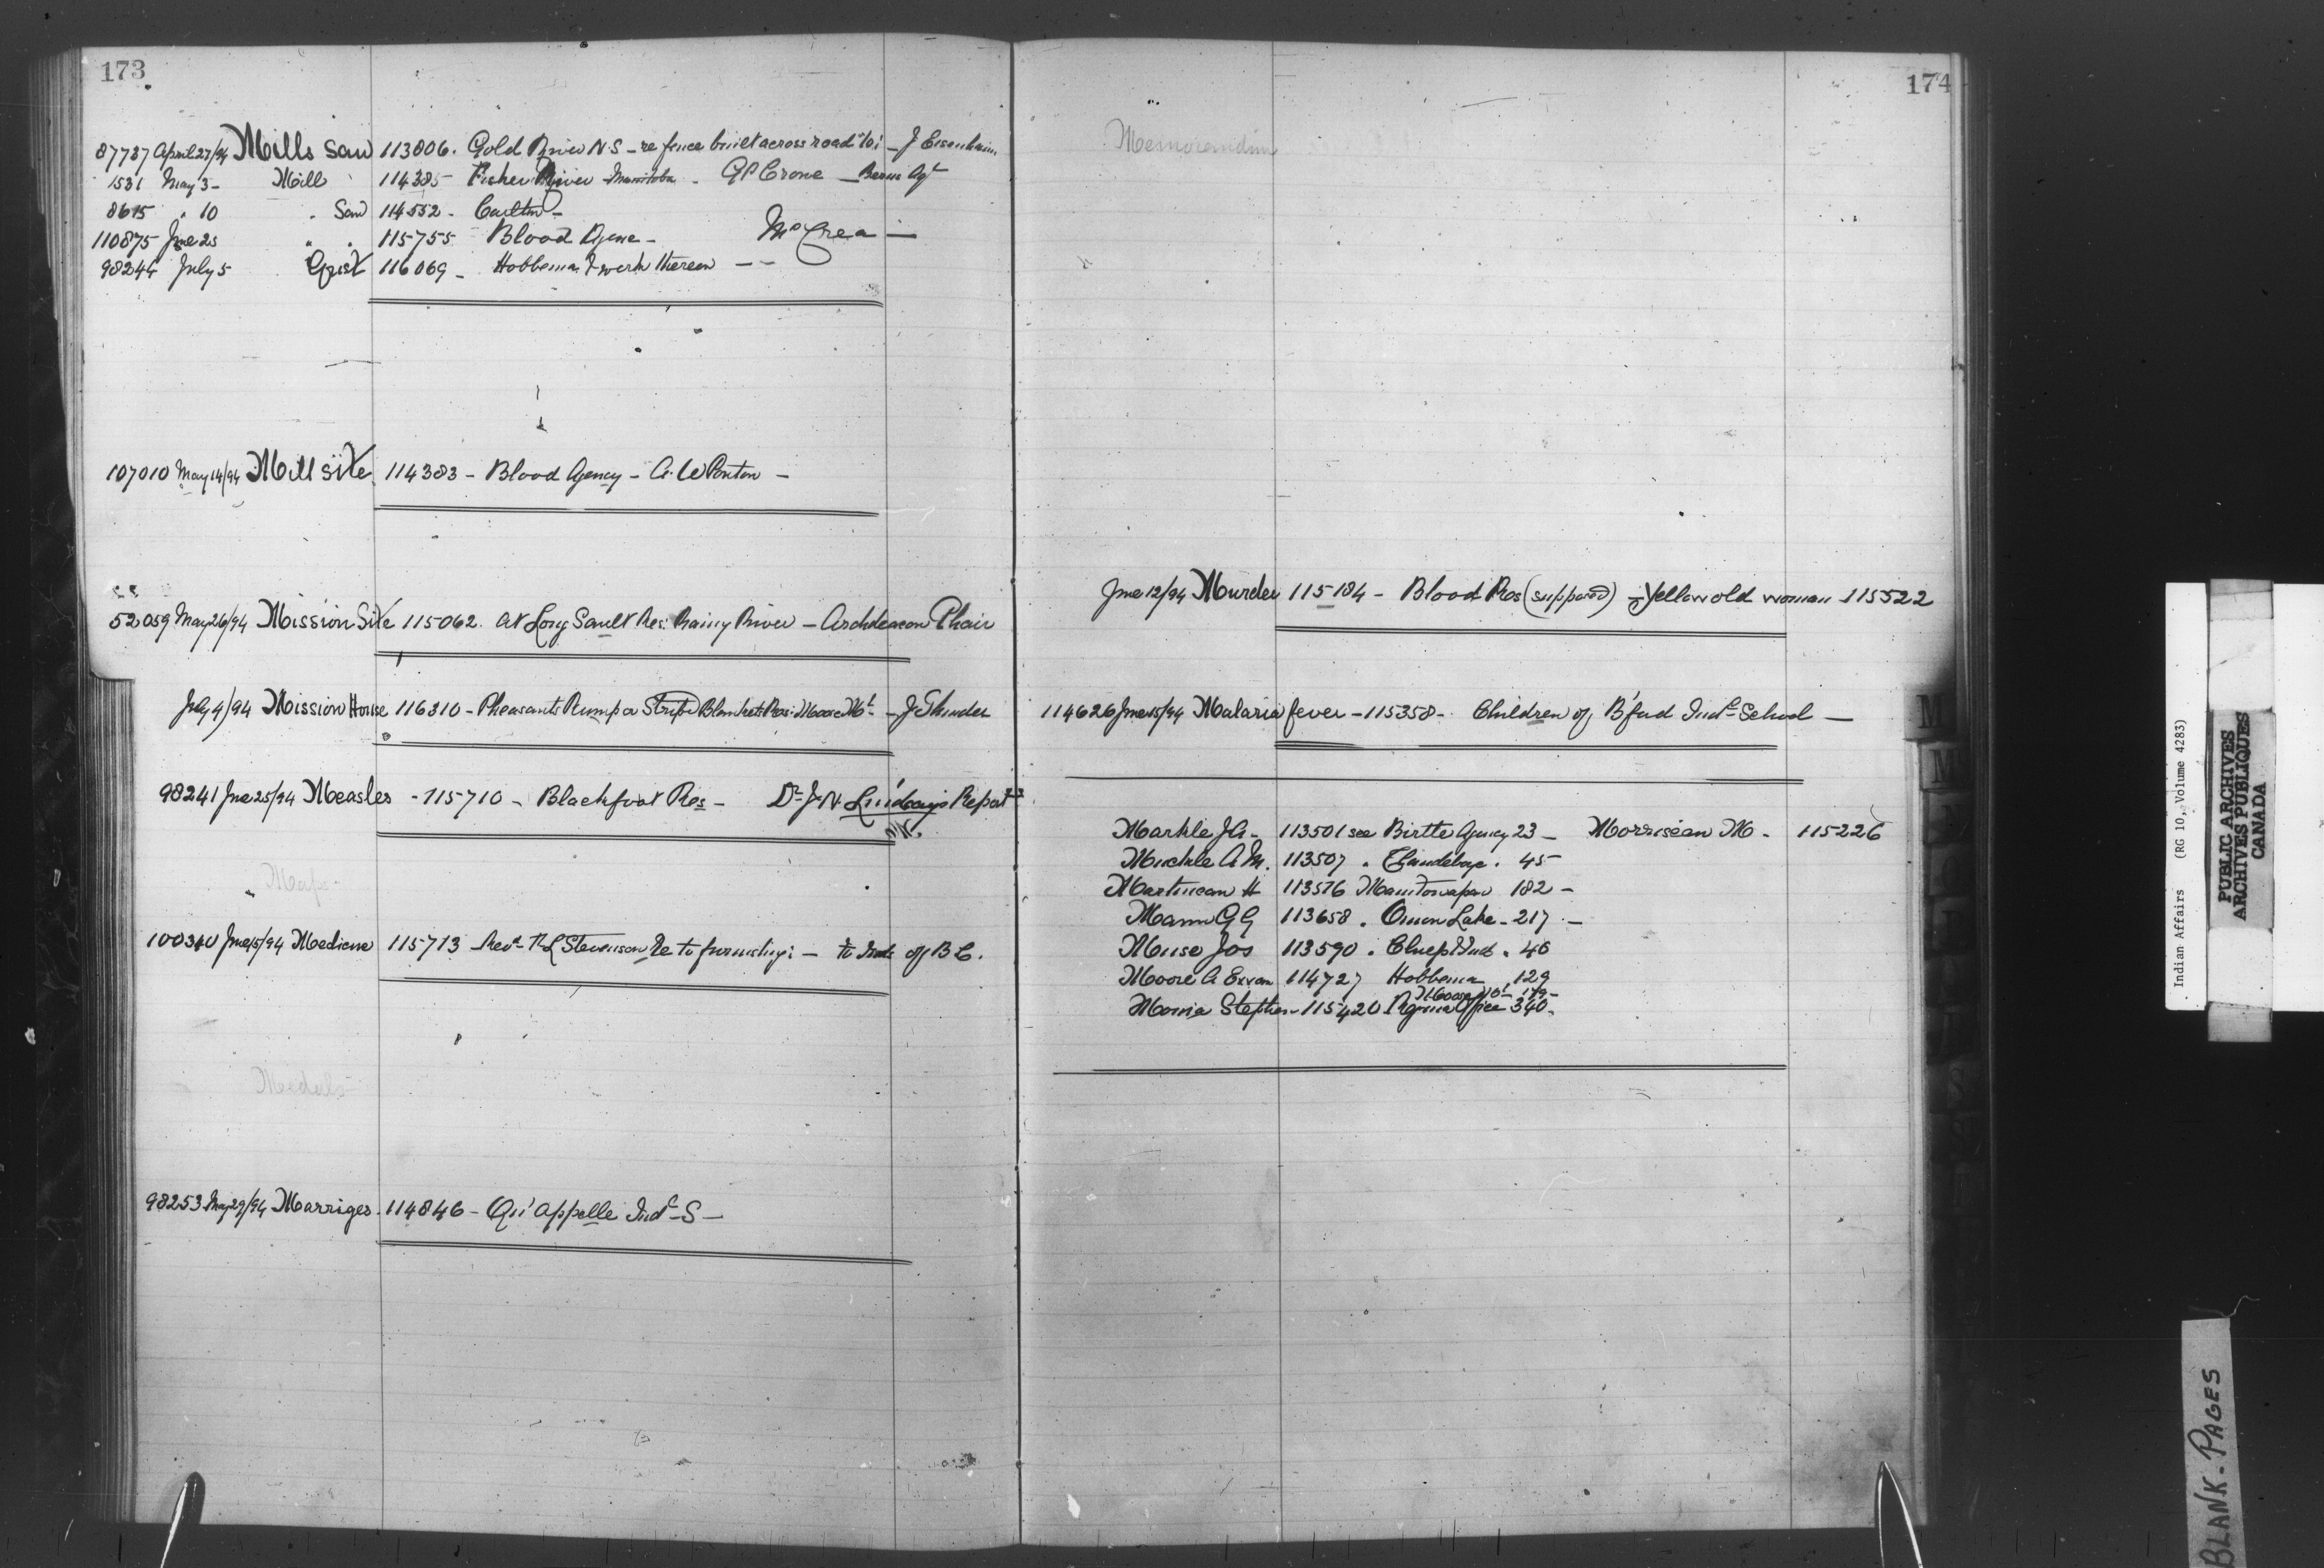 173
87787 April 27/94 Mills Saw 113806. Gold River N.S - re fence built across road to: - J Eisenhauer
1531 May 3 - Mill 114385 - Fisher River Manitoba - G P Crone - Berens Agt
8615 " 10 " Saw 114552 - Carlton -
110875 Jne 25 " " 115755 Blood Agene - McCrea -
98244 July 5 Grist 116069 - Hobbema & work thereon - -
107010 May 14/94 Mill site 114383 - Blood Agency - A. W Ponton -
52059 May 26/94 Mission Site 115062. At Long Sault Res: Rainy River - Archdeacon Phair
July 4/94 Mission House 116310 - Pheasants Rump or Striped Blankets Res: Moose Mt -
98241 Jne 25/94 Measles - 115710 - Blackfoot Res - Dr. J. N. Lindsays Report
Maps -
100310 Jne 15/94 Medicine 115713 Revd. R L Stevenson Re to furnishg: - to Inds of B C.
Medals
98253 May 29/94 Marriges. 114846 - Qu'appelle Indl - S -
174
Memorandum
Jne 12/94 Murder 115184 - Blood Res (supposed) - Yellow old woman 115522
114626 Jne 15/94 Malaria fever - 115358 - Children of B'ford Indl - School -
Markle J A - 113501 see Birtle Agency 23 - Morriseau M - 115226
Muckle A. M. 113507 " Clandeboye " 45 -
Martineau H 113576 Manitowapaw 182 -
Mann G G 113658 " Onion Lake - 217 -
Meuse Jos 113590 " 46
Moore A 114727 Hobbema, 129
Moose Mt - 179 -
Stephen - 115420 Regina Office 340 -
M
M
Indian Affairs (RG 10, Volume 4283)
PUBLIC ARCHIVES
ARCHIVES PUBLIQUES
CANADA
BLANK - PAGES